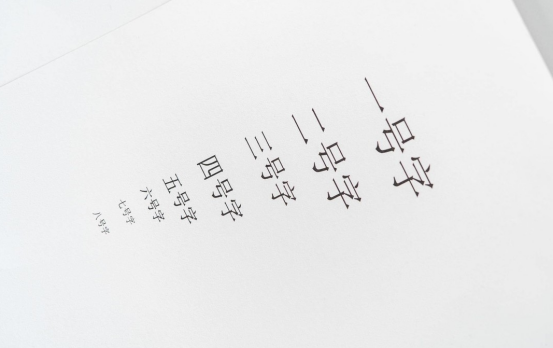 一号字
二号字
三号字
四号字
五号字
六号字
七号字
八号字